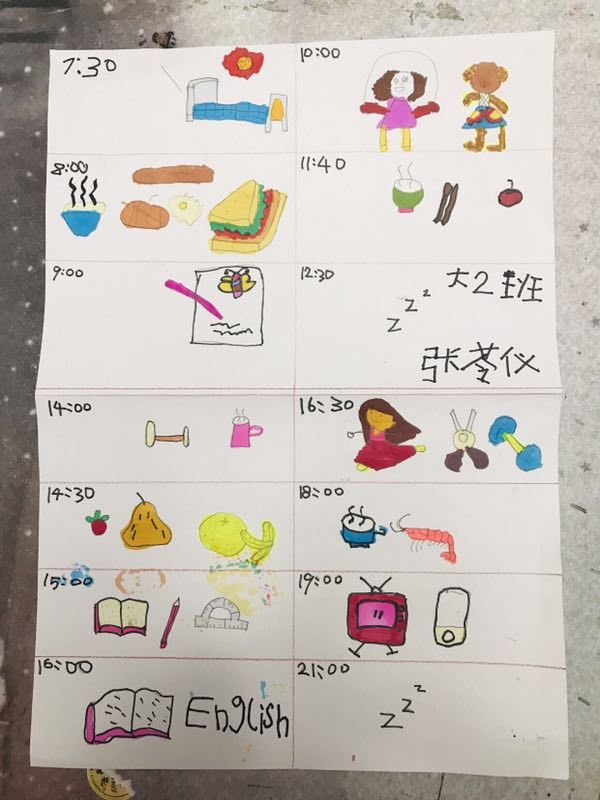 7:30
8:00
9:00
10:00
11:40
12:30
z z z
大2班
张苓仪
14:00
14:30
15:00
16:00
English
16:30
18:00
19:00
21:00
z z z